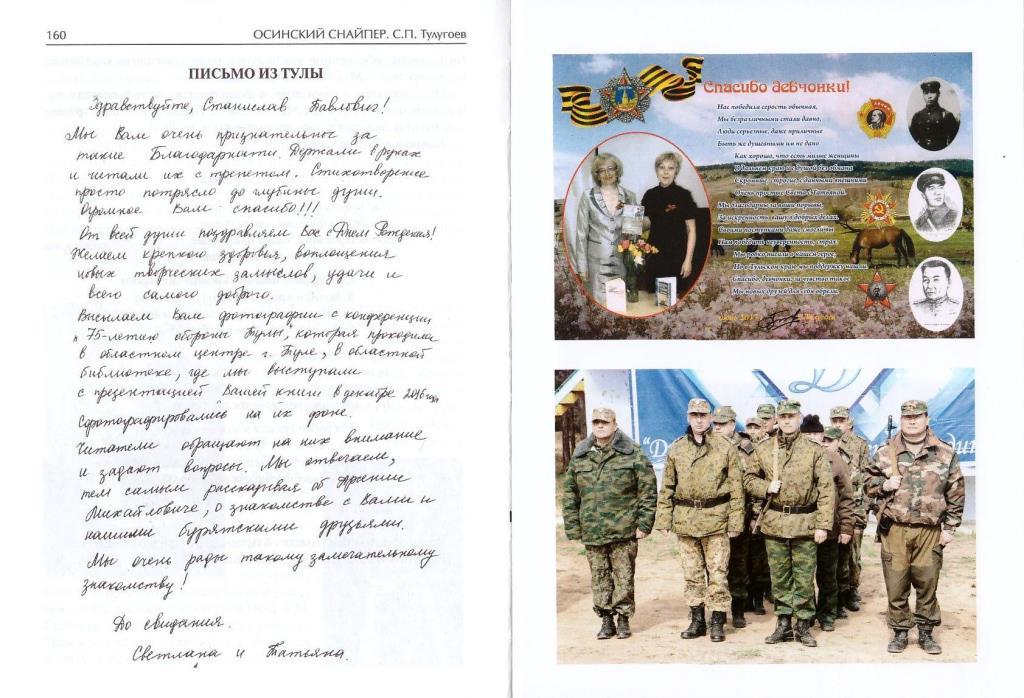 160
ОСИНСКИЙ СНАЙПЕР. С.П. Тулугоев
ПИСЬМО ИЗ ТУЛЫ
Здравствуйте, Станислав Павлович!
Мы Вам очень признательные за
такие Благодарности. Держали в руках
и читали их с трепетом. Стихотворение
просто потрясло до глубины души.
Огромное Вам спасибо!!!
От всей души поздравляем Вас с Днем Рождения!
Желаем крепкого здоровья, воплощения
новых творческих замыслов, удачи и
всего самого доброго.
Высылаем Вам фотографии с конференции
к 75-летию обороны Тулы, которая проходила
в областном центре г. Туле, в областной
библиотеке, где мы выступали
с презентацией Вашей книги в декабре 2016 года
Сфотографировались на их фоне.
Читатели обращают на них внимание
и задают вопросы. Мы отвечаем,
тем самым рассказывая об Арсении
Михайловиче, о знакомстве с Вами и
нашими бурятскими друзьями.
Мы очень рады такому замечательному
знакомству!
До свидания.
Светлана и Татьяна.
Спасибо девчонки!
Нас победила серость обычная,
Мы безразличными стали давно,
Люди серьезные, даже приличные
Быть же душевными им не дано
Как хорошо, что есть милые женщины
В далеком краю и с душой без обмана
Скромные, строгие, с данными внешними
Очень простые Света с Татьяной.
Мы благодарны за ваши порывы,
За искренность вашу в добрых делах.
Своими поступками даже смогли вы
Нам победить неуверенность, страх
Мы редко писали о нашем герое,
Но в Тульском краю мы поддержку нашли
Спасибо, девчонки, за чувство такое
Мы новых друзей для себя обрели.
"Д